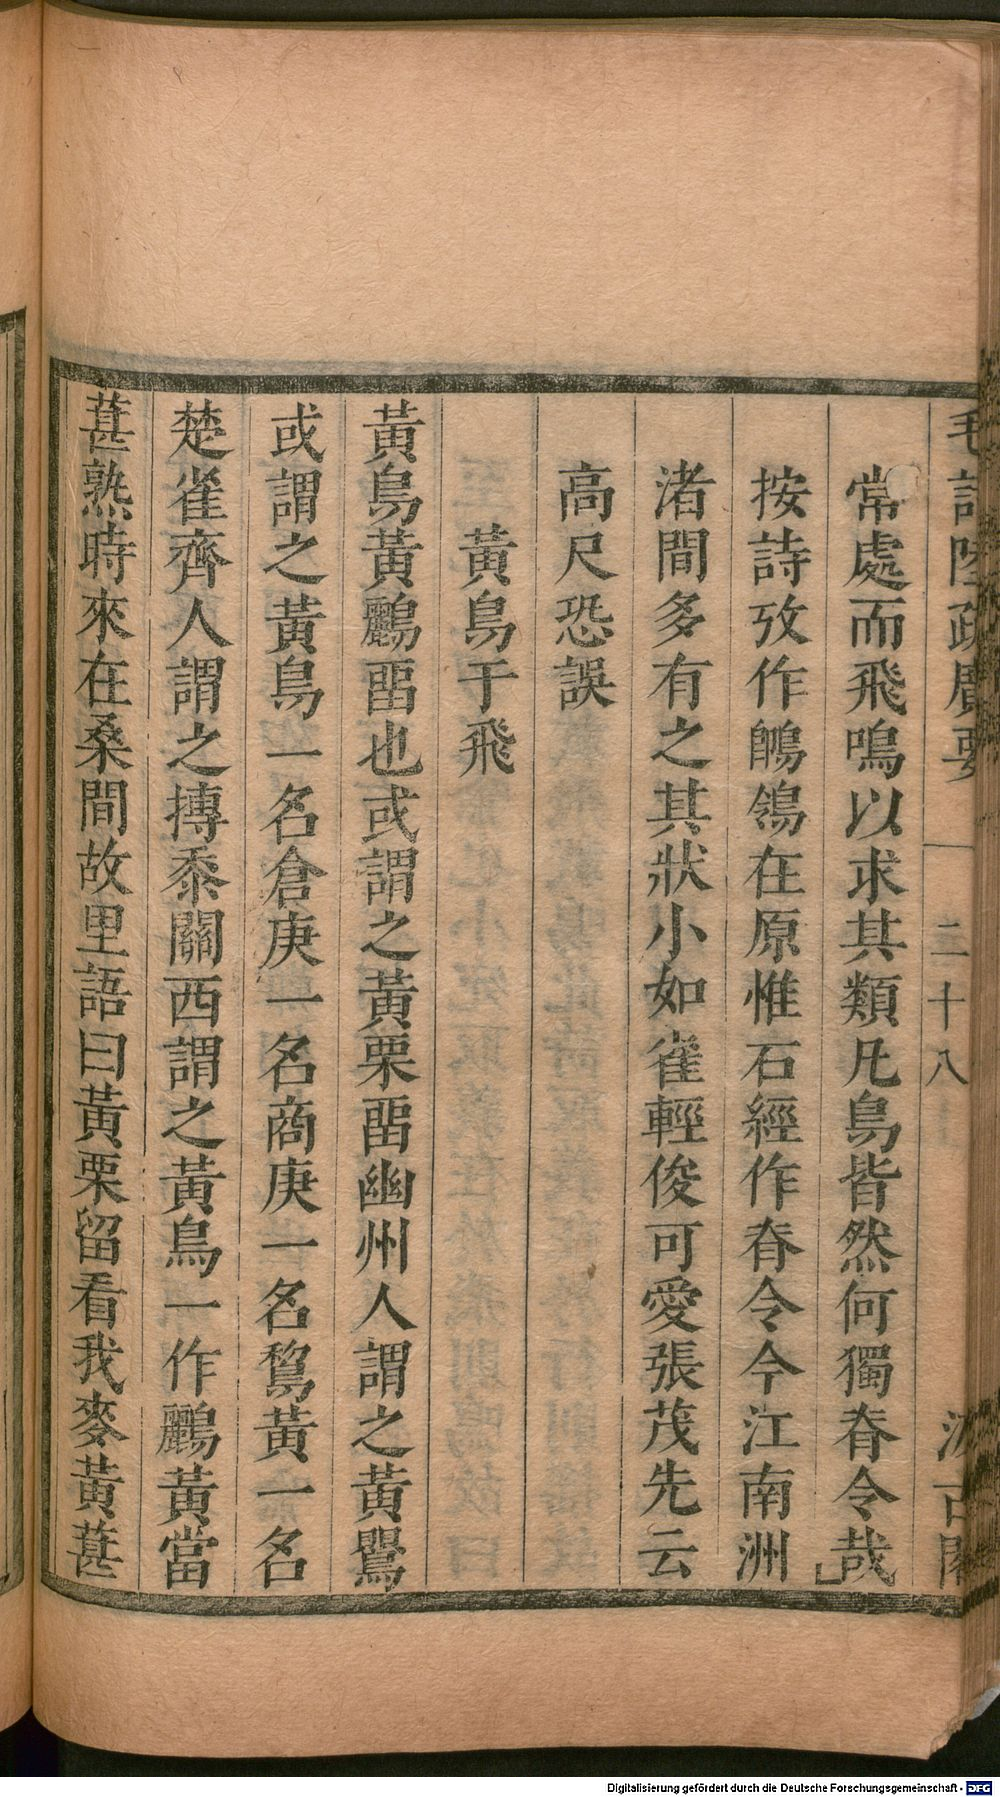 毛詩陸疏廣要 二十八 汲古閣
常處而飛鳴以求其類凡鳥皆然何獨脊令哉
按詩攷作鶺鴒在原惟石經作脊令今江南洲
渚間多有之其狀小如雀輕俊可愛張茂先云
高尺恐誤
黃鳥于飛
黃鳥黃鸝畱也或謂之黃栗畱幽州人謂之黃鸎
或謂之黃鳥一名倉庚一名商庚一名鵹黃一名
楚雀齊人謂之摶黍關西謂之黃鳥一作鸝黃當
葚熟時來在桑間故里語曰黃栗留看我麥黃葚
Digitalisierung gefördert durch die Deutsche Forschungsgemeinschaft - DFG